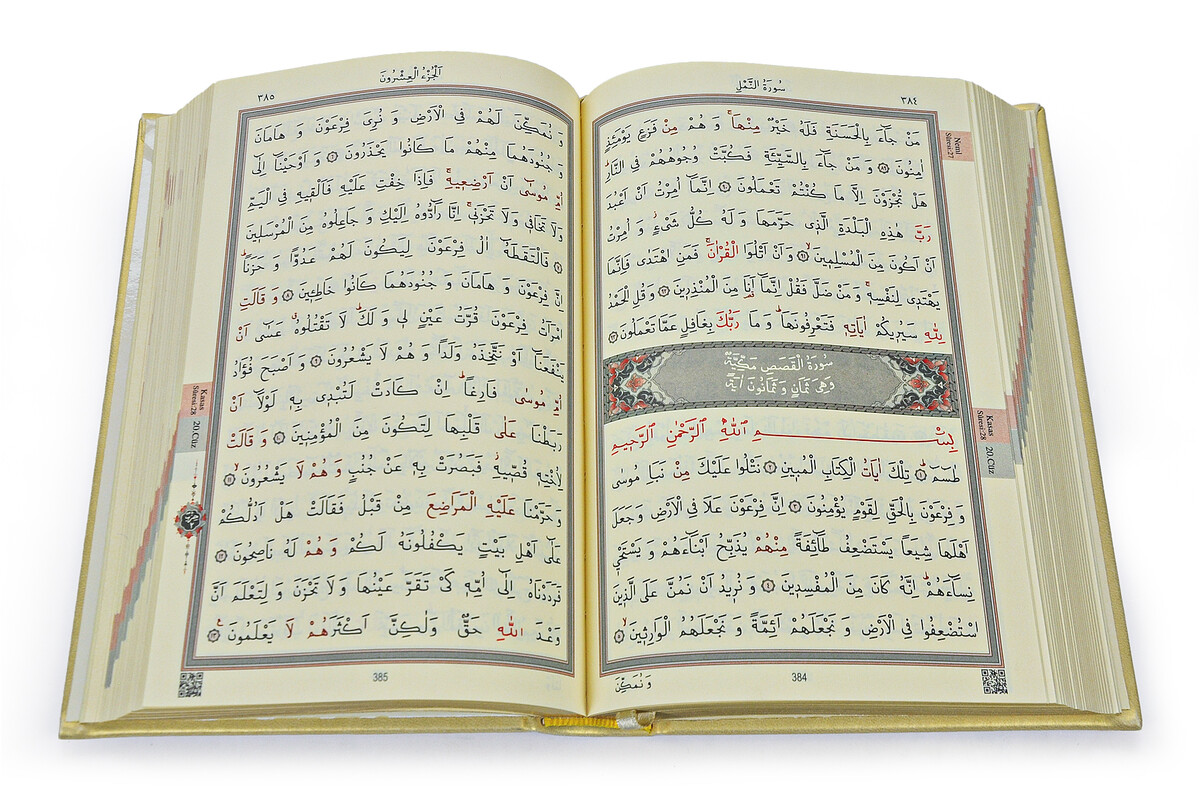 سُورَةُ النَّمْلِ
٣٨٤
مَنْ جَٓاءَ بِالْحَسَنَةِ فَلَهُ خَيْرٌ مِنْهَاۚ وَ هُمْ مِنْ فَزَعٍ يَوْمَئِذٍ
اٰمِنُونَ ﴿٨٩﴾ وَ مَنْ جَٓاءَ بِالسَّيِّئَةِ فَكُبَّتْ وُجُوهُهُمْ فِي النَّارِۜ
هَلْ تُجْزَوْنَ اِلَّا مَا كُنْتُمْ تَعْمَلُونَ ﴿٩٠﴾ اِنَّمَٓا اُمِرْتُ اَنْ اَعْبُدَ
رَبَّ هٰذِهِ الْبَلْدَةِ الَّذٖي حَرَّمَهَا وَ لَهُ كُلُّ شَيْءٍؗ وَ اُمِرْتُ
اَنْ اَكُونَ مِنَ الْمُسْلِمٖينَۙ ﴿٩١﴾ وَ اَنْ اَتْلُوَا الْقُرْاٰنَۚ فَمَنِ اهْتَدٰى فَاِنَّمَا
يَهْتَدٖي لِنَفْسِهٖۚ وَ مَنْ ضَلَّ فَقُلْ اِنَّمَٓا اَنَا۬ مِنَ الْمُنْذِرٖينَ ﴿٩٢﴾ وَ قُلِ الْحَمْدُ
لِلّٰهِ سَيُرٖيكُمْ اٰيَاتِهٖ فَتَعْرِفُونَهَاۜ وَ مَا رَبُّكَ بِغَافِلٍ عَمَّا تَعْمَلُونَ ﴿٩٣﴾
سُورَةُ الْقَصَصِ مَكِّيَّةٌ
وَهِيَ ثَمَانٍ وَ ثَمَانُونَ اٰيَةً
بِسْمِ اللّٰهِ الرَّحْمٰنِ الرَّحٖيمِ
طٰسٓمٓ ﴿١﴾ تِلْكَ اٰيَاتُ الْكِتَابِ الْمُبٖينِ ﴿٢﴾ نَتْلُوا عَلَيْكَ مِنْ نَبَأِ مُوسٰى
وَ فِرْعَوْنَ بِالْحَقِّ لِقَوْمٍ يُؤْمِنُونَ ﴿٣﴾ اِنَّ فِرْعَوْنَ عَلَا فِي الْاَرْضِ وَ جَعَلَ
اَهْلَهَا شِيَعاً يَسْتَضْعِفُ طَٓائِفَةً مِنْهُمْ يُذَبِّحُ اَبْنَٓاءَهُمْ وَ يَسْتَحْيٖ
نِسَٓاءَهُمْۜ اِنَّهُ كَانَ مِنَ الْمُفْسِدٖينَ ﴿٤﴾ وَ نُرٖيدُ اَنْ نَمُنَّ عَلَى الَّذٖينَ
اسْتُضْعِفُوا فِي الْاَرْضِ وَ نَجْعَلَهُمْ اَئِمَّةً وَ نَجْعَلَهُمُ الْوَارِثٖينَۙ ﴿٥﴾
وَ نُمَكِّنَ
384
Neml
Sûresi:27
Kasas
Sûresi:28
20.Cüz
اَلْجُزْءُ الْعِشْرُونَ
٣٨٥
وَ نُمَكِّنَ لَهُمْ فِي الْاَرْضِ وَ نُرِيَ فِرْعَوْنَ وَ هَامَانَ
وَ جُنُودَهُمَا مِنْهُمْ مَا كَانُوا يَحْذَرُونَ ﴿٦﴾ وَ اَوْحَيْنَٓا اِلٰٓى
اُمِّ مُوسٰٓى اَنْ اَرْضِعٖيهِۚ فَاِذَا خِفْتِ عَلَيْهِ فَاَلْقٖيهِ فِي الْيَمِّ
وَلَا تَخَافٖي وَلَا تَحْزَنٖيۚ اِنَّا رَٓادُّوهُ اِلَيْكِ وَ جَاعِلُوهُ مِنَ الْمُرْسَلٖينَ
﴿٧﴾ فَالْتَقَطَهُٓ اٰلُ فِرْعَوْنَ لِيَكُونَ لَهُمْ عَدُوًّا وَ حَزَناًۜ
اِنَّ فِرْعَوْنَ وَ هَامَانَ وَ جُنُودَهُمَا كَانُوا خَاطِـٖٔينَ ﴿٨﴾ وَ قَالَتِ
امْرَاَتُ فِرْعَوْنَ قُرَّتُ عَيْنٍ لٖي وَ لَكَۜ لَا تَقْتُلُوهُۗ عَسٰٓى اَنْ
يَنْفَعَنَٓا اَوْ نَتَّخِذَهُ وَلَداً وَ هُمْ لَا يَشْعُرُونَ ﴿٩﴾ وَ اَصْبَحَ فُؤٰادُ
اُمِّ مُوسٰى فَارِغاًۜ اِنْ كَادَتْ لَتُبْدٖي بِهٖ لَوْلَٓا اَنْ
رَبَطْنَا عَلٰى قَلْبِهَا لِتَكُونَ مِنَ الْمُؤْمِنٖينَ ﴿١٠﴾ وَ قَالَتْ
لِاُخْتِهٖ قُصّٖيهِؗ فَبَصُرَتْ بِهٖ عَنْ جُنُبٍ وَ هُمْ لَا يَشْعُرُونَۙ ﴿١١﴾
وَ حَرَّمْنَا عَلَيْهِ الْمَرَاضِعَ مِنْ قَبْلُ فَقَالَتْ هَلْ اَدُلُّكُمْ
عَلٰٓى اَهْلِ بَيْتٍ يَكْفُلُونَهُ لَكُمْ وَ هُمْ لَهُ نَاصِحُونَ ﴿١٢﴾
فَرَدَدْنَاهُ اِلٰٓى اُمِّهٖ كَيْ تَقَرَّ عَيْنُهَا وَلَا تَحْزَنَ وَ لِتَعْلَمَ اَنَّ
وَعْدَ اللّٰهِ حَقٌّ وَلٰكِنَّ اَكْثَرَهُمْ لَا يَعْلَمُونَ ﴿١٣﴾
385
Kasas
Sûresi:28
20.Cüz